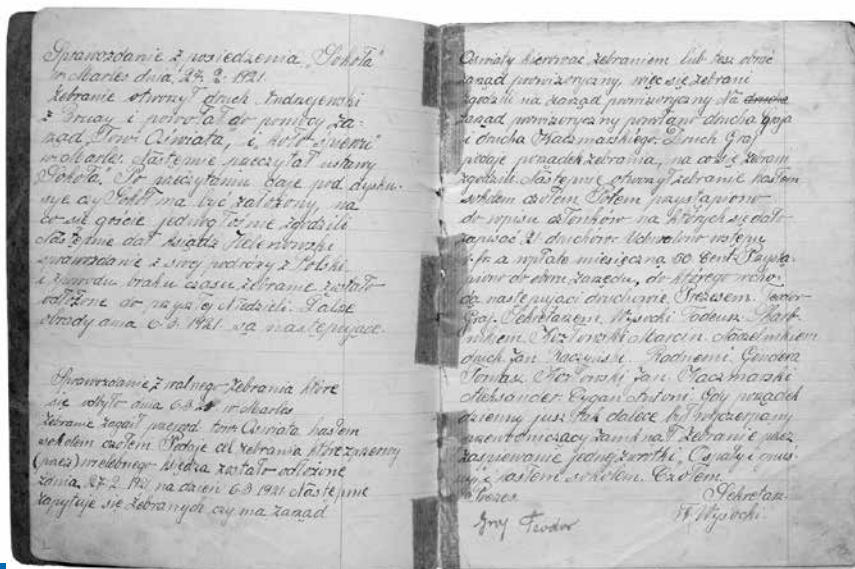 Sprawozdanie z posiedzenia „Sokoła”
w Marles dnia, 27. 2. 1921.
Zebranie otworzył druch Andrzejewski
z Bruay i powołał do pomocy za-
rząd „Tow. Oświata”, i „Koło śpiewu”
w Marles. Następnie przeczytał ustawy
„Sokoła”. Po przeczytaniu daje pod dysku-
syę czy Sokół ma być założony, na
co się goście jednogłośnie zgodzili
Następnie dał ksiądz Helenowski
sprawozdanie z swej podróży z Polski
i z powodu braku czasu zebranie zostało
odłożone do przyszłej Niedzieli. Dalsze
obrady dnia 6.3. 1921. są następujące.
Sprawozdanie z walnego Zebrania które
się odbyło dnia 6.3. w Marles
Zebranie zagaił przewod. tow. Oświata hasłem
sokołem czołem. Podaje cel zebrania które z przerwy
(przez) wielebnego księdza zostało odłożone
z dnia, 27.2. 1921 na dzień 6.3. 1921. Następnie
zapytuje się Zebranych czy ma zarząd
Oświaty kierować zebraniem lub tesz obrać
zarząd prowizoryczny, więc się zebrani
zgodzili na zarząd prowizoryczny. Na drucha
zarząd prowizoryczny powołano drucha Graja
i drucha Kaczmarskiego. Druch Graj
podaje porządek zebrania, na co się zebrani
zgodzili. Następnie otworzył zebranie hasłem
sokołem czołem. Potem przystąpiono
do wpisu członków na których się dało
zapisać 21 druchów. Uchwalono wstępu
1. fr. a wpłatę miesięczną 50 Cent. Przystą-
piono do oboru zarządu, do którego wcho-
dzą następujący druchowie. Prezesem. Teodor
Graj. Sekretarzem. Wysocki Tadeusz. Skarb-
nikiem. Kozłowski Marcin. Naczelnikiem
druch Jan Raczyński. Radnemi. Gendera
Tomasz. Kozłowski Jan. Kaczmarski
Aleksander. Cygan Antoni. Gdy porządek
dzienny jusz tak dalece był wyczerpany
przewodniczący zamknął Zebranie przez
zaśpiewanie jednej zwrotki, „Ospały i gnuś-
ny” i hasłem sokołem. Czołem.
Prezes Sekretarz.
Graj Teodor T. Wysocki.